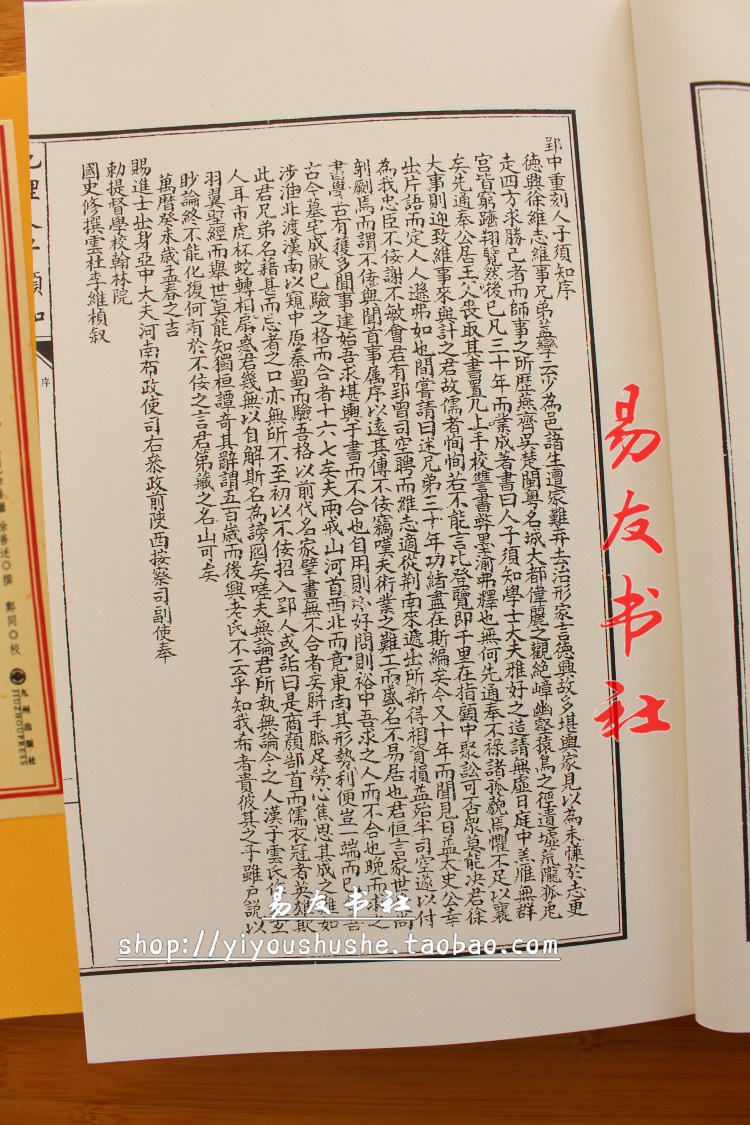 郢中重刻人子須知序
德興徐維志維事兄弟蓋孿云少為邑諸生遭家難弃去治形家言德興故多堪輿家見以為未慊於志更
走四方求勝己者而師事之所歷燕齊吳楚閩粵名城大都偉麗之觀絕嶂幽壑猿鳥之徑遺墟荒隴狐兎
宮皆窮躋翔覽然後已凡三十年而業成著書曰人子須知學士大夫雅好之造請無虛日庭中羔雁無群
矣先通奉公居王父喪取其書置几上手校讐書弊墨渝弗釋也無何先通奉不祿諸孤藐焉懼不足以襄
大事則迎致維事來與計之君故儒者恂恂若不能言比登覽即千里在指顧中聚訟可否衆莫能决君徐
出片語而定人人遜弗如也間嘗請曰述兄弟三十年功緒盡在斯編矣今又十年而聞見日益太史公幸
為我忠臣不佞謝不敏會君有郢曾司空聘而維志適從荆南來遞出所新得相資損益始半司空遂以付
剞劂焉而謂不佞與聞首事属序以遠其傳不佞竊嘆夫術業之難工而盛名不易居也君恒言家世
書學古有獲多聞事建始吾求堪輿于書而不合也自用則好問則裕中吾求之人而不合也晚而求之
古今墓宅成敗已驗之格而合者十六七矣夫兩戒山河首西北而竟東南其形勢利便豈一端而已
涉淮北渡漢南以窺中原秦蜀而驗吾格以前代名家擘畫無不合者矣胼手胝足勞心焦思其成之難如
此君兄弟名藉甚而忌者之口亦無所不至初以不佞招入郢人或詬曰是商顏鄠首而儒衣冠者英雄欺
人耳市虎杯蛇轉相扇惑君幾無以自解斯名為謗囮矣嗟夫無論君所執無論今之人漢子雲氏
羽翼聖經而舉世莫能知獨桓譚奇其辭謂五百歲而後興老氏不云乎知我希者貴彼其之子雖戶說以
眇論終不能化復何有於不佞之言君第藏之名山可矣
萬曆癸未歲孟春之吉
賜進士出身亞中大夫河南布政使司右叅政前陝西按察司副使奉
勑提督學校翰林院
國史修撰雲杜李維楨叙
序
徐善述◎撰 鄭同◎校
九州出版社
JIUZHOUPRESS
易友书社
易友书社
shop://yiyoushushe.taobao.com